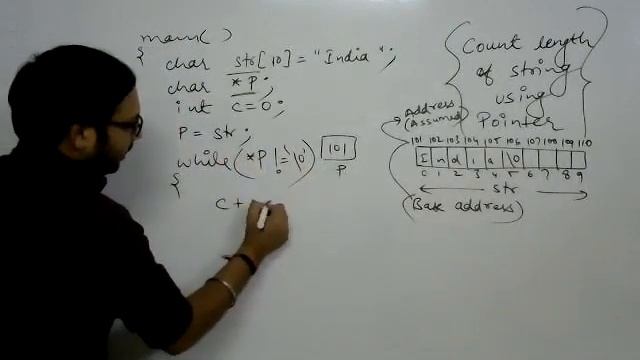 main( )
{
char str[10] = "India";
char *P;
int c=0;
P = str;
while(*P != '\0')
{
c+
101
P
Count length
of string
using
Pointer
Address
(Assumed)
101 102 103 104 105 106 107 108 109 110
I n d i a \0
0 1 2 3 4 5 6 7 8 9
str
(Base address)